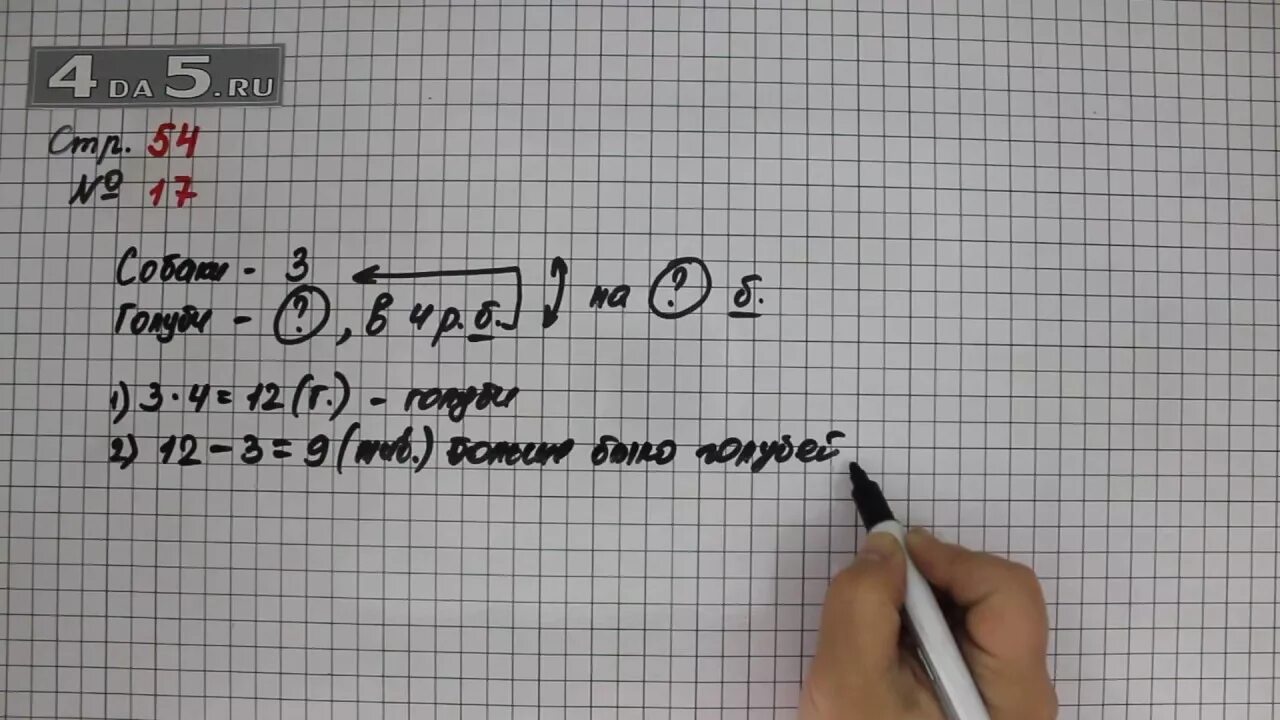 4DA5.RU
Стр. 54
№ 17
Собаки - 3
Голуби - ?, в 4 р. б. на ? б.
1) 3 · 4 = 12 (г.) - голуби
2) 12 - 3 = 9 (жив.) больше было голубей